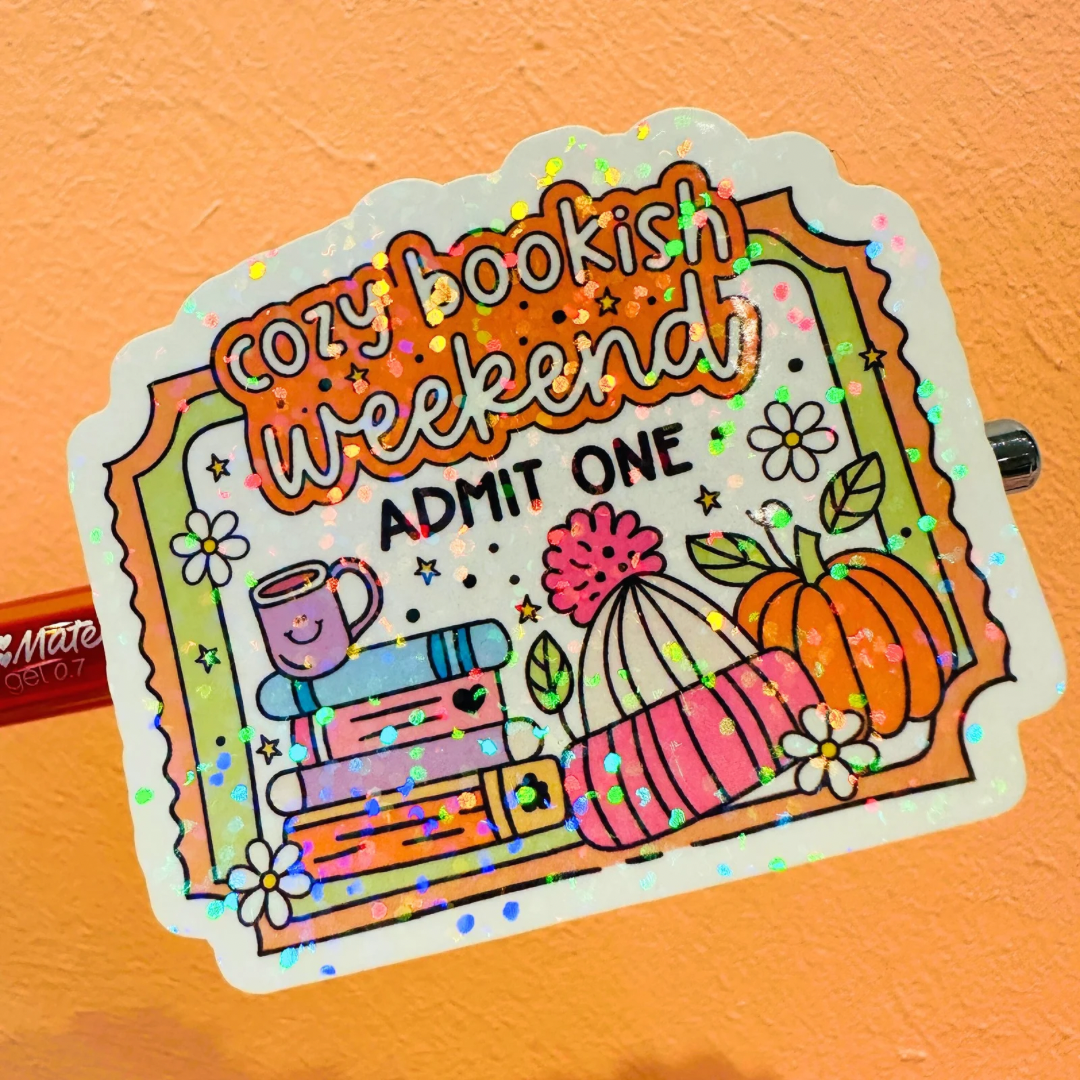 cozy bookish
weekend
ADMIT ONE
Mate
gel 0.7